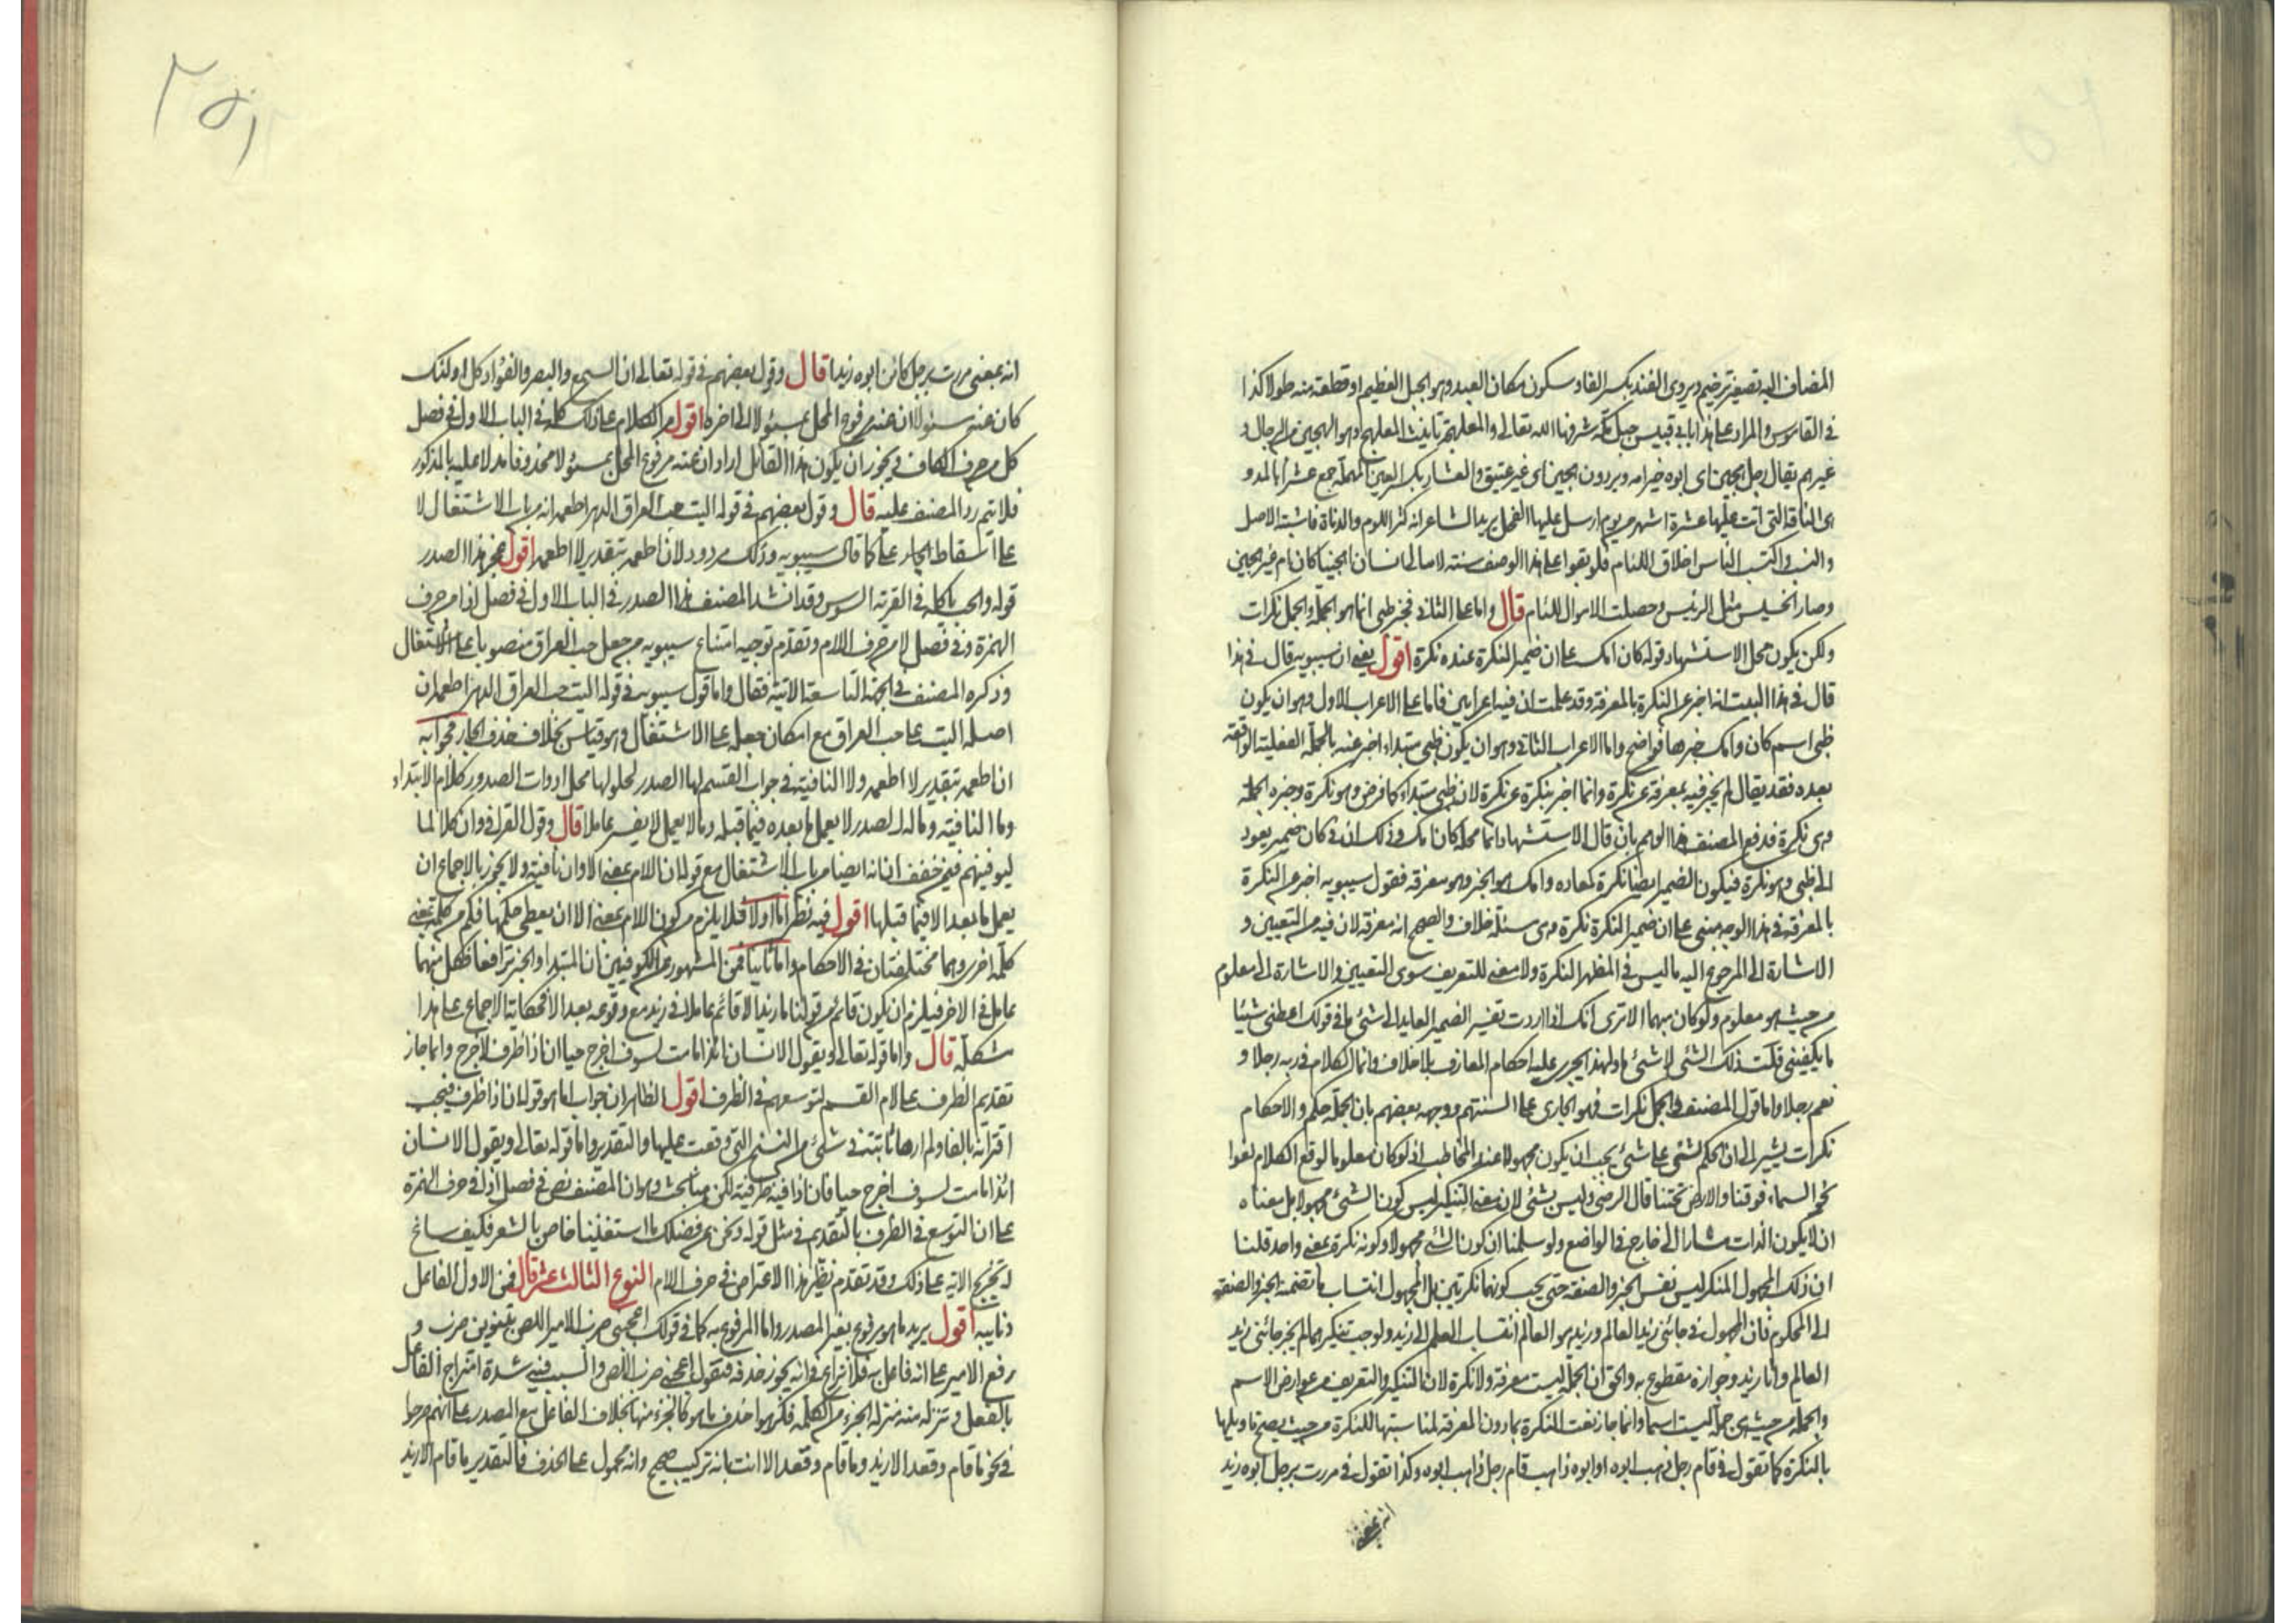 المضاف اليه تصغير ترخيم ويروى الفند بكسر الفاء وسكون مكان العبد وهو الجبل العظيم او قطعة منه طولا كذا
فى القاموس والمراد على هذا ابا بى قبيس جبل بمكة شرفها الله تعالى والمعلهجة تانيث المعلهج وهو الهجين من الرجال و
غيرهم يقال رجل هجين اى ابوه خير من امه وبرذون هجين اى غير عتيق والعشار بكسر العين المهملة جمع عشرا بالمد و
هى الناقة التى اتت عليها عشرة اشهر من يوم ارسل عليها الفحل يريد الشاعر انه كثر اللوم والدناة فاشتبه الاصل
والنسب واكتسب الناس اخلاق اللئام فلو بقوا على هذا الوصف سنة لا يبالى انسان اهجينا كان ام غير هجين
وصار الخسيس مثل الرئيس وحصلت الاموال للئام قال واما على الثانى فخبر ظبى انما هو الجملة والجمل نكرات
ولكن يكون محل الاستشهاد قوله كان امك على ان ضمير النكرة عنده نكرة اقول يعنى ان سيبويه قال فى هذا
قال فى هذا البيت انه اخبر عن النكرة بالمعرفة وقد علمت ان فيه اعرابين فاما على الاعراب الاول وهو ان يكون
ظبى اسم كان وامك خبرها فواضح واما الاعراب الثانى وهو ان يكون ظبى مبتداء اخبر عنه بالجملة الفعلية الواقعة
بعده فقد يقال لم يخبر فيه بمعرفة عن نكرة وانما اخبر بنكرة عن نكرة لان ظبى مبتداء كما فرض وهو نكرة وخبره الجملة
وهى نكرة فدفع المصنف هذا الوهم بان قال الاستشهاد انما محله كان امك وذلك ان فى كان ضمير يعود
الى ظبى وهو نكرة فيكون الضمير ايضا نكرة كمعاده وامك هو الخبر وهو معرفة فقول سيبويه اخبر عن النكرة
بالمعرفة فى هذا الوجه مبنى على ان ضمير النكرة نكرة وهى مسئلة خلاف والصحيح انه معرفة لان فيه من التعيين و
الاشارة الى المرجوع اليه ما ليس فى المظهر النكرة ولا معنى للتعريف سوى التعيين والاشارة الى معلوم
من حيث هو معلوم ولو كان مبهما الا ترى انك اذا اردت تفسير الضمير العايد الى شئ ما فى قولك اعطنى شيئا
ما يكفينى قلت ذلك الشئ لا شئ ما ولهذا يجرى عليه احكام المعارف بلا خلاف وانما الكلام فى ربه رجلا و
نعم رجلا واما قول المصنف فى الجمل نكرات فهو الجارى على السنتهم ووجهه بعضهم بان الجملة حكم والاحكام
نكرات يشير الى ان الحكم لشئ على شئ يجب ان يكون مجهولا عند المخاطب اذ لو كان معلوما لوقع الكلام لغوا
نحو السماء فوقنا والارض تحتنا قال الرضى وليس بشئ لان معنى التنكير ليس كون الشئ مجهولا بل معناه
ان لا يكون الذات مشارا الى خارج فى الواضع ولو سلمنا ان كون الشئ مجهولا وكونه نكرة بمعنى واحد قلنا
ان ذلك المجهول المنكر ليس نفس الخبر والصفة حتى يجب كونهما نكرتين بل المجهول انتساب ما تضمنه الخبر والصفة
الى المحكوم فان المجهول فى جائنى زيد العالم وزيد هو العالم انتساب العلم الى زيد ولو وجب تنكيرهما لم يجز جائنى زيد
العالم وانا زيد وجوازه مقطوع به والحق ان الجملة ليست معرفة ولا نكرة لان التنكير والتعريف من عوارض الاسم
والجملة من حيث هى جملة ليست اسما وانما جاز نعت النكرة بها دون المعرفة لمناسبتها للنكرة من حيث يصح تاويلها
بالنكرة كما تقول فى قام رجل ذهب ابوه او ابوه ذاهب قام رجل ذاهب ابوه وكذا تقول فى مررت برجل ابوه زيد
انه بمعنى
٢٥١
انه بمعنى مررت برجل كائن ابوه زيدا قال وقول بعضهم فى قوله تعالى ان السمع والبصر والفؤاد كل اولئك
كان عنه مسئولا ان عنه مرفوع المحل بمسئولا الى اخره اقول مر الكلام على ذلك كله فى الباب الاول فى فصل
كل من حرف الكاف فيجوز ان يكون هذا القائل اراد ان عنه مرفوع المحل بمسئولا محذوفا مدلا عليه بالمذكور
فلا يتم رد المصنف عليه قال وقول بعضهم فى قوله اليت حب العراق الدهر اطعمه انه من باب الاشتغال لا
على اسقاط الجار على كما قال سيبويه وذلك مردود لان اطعمه بتقدير لا اطعمه اقول عجز هذا الصدر
قوله والحب ياكله فى القرية السوس وقد انشد المصنف هذا الصدر فى الباب الاول فى فصل اذا من حرف
الهمزة وفى فصل لا من حرف اللام وتقدم توجيه امتناع سيبويه من جعل حب العراق منصوبا على الاشتغال
وذكره المصنف فى الجهة التاسعة الاتية فقال واما قول سيبويه فى قوله اليت حب العراق الدهر اطعمه ان
اصله اليت على حب العراق مع امكان جعله على الاشتغال وهو قياس بخلاف حذف الجار فجوابه
ان اطعمه بتقدير لا اطعمه ولا النافية فى جواب القسم لها الصدر لحلولها محل ادوات الصدور كلام الابتداء
وما النافية وما له الصدر لا يعمل ما بعده فيما قبله وما لا يعمل لا يفسر عاملا قال وقول الفراء فى وان كلا لما
ليوفينهم فيمن خفف ان انه ايضا من باب الاشتغال مع قوله ان اللام بمعنى الا وان نافية ولا يجوز بالاجماع ان
يعمل ما بعد الا فيما قبلها اقول فيه نظر اما اولا فلا يلزم من كون اللام بمعنى الا ان يعطى حكمها فكم من كلمة بمعنى
كلمة اخرى وهما مختلفتان فى الاحكام واما ثانيا فمن المشهور عن الكوفيين ان المبتدا والخبر ترافعا فكل منهما
عامل فى الاخر فيلزم ان يكون قائم من قولنا ما زيد الا قائم عاملا فى زيد مع وقوعه بعد الا فحكاية الاجماع على هذا
مشكلة قال واما قوله تعالى ويقول الانسان ائذا ما مت لسوف اخرج حيا فان اذا ظرف لاخرج وانما جاز
تقديم الظرف على لام القسم لتوسعهم فى الظرف اقول الظاهر ان جواب اما هو قوله فان اذا ظرف فيجب
اقترانه بالفاء ولم ارها ثابتة فى شئ من النسخ التى وقفت عليها والتقدير واما قوله تعالى ويقول الانسان
ائذا ما مت لسوف اخرج حيا فان اذا فيه ظرفية لكن هنا بحث وهو ان المصنف نص فى فصل اذا فى حرف الهمزة
على ان التوسع فى الظرف بالتقديم فى مثل قوله ونحن عن فضلك ما استغنينا خاص بالشعر فكيف ساغ
له تخريج الاية على ذلك وقد تقدم نظير هذا الاعتراض فى حرف اللام النوع الثالث عشر قال فمن الاول الفاعل
ونايبه اقول يريد ما هو مرفوع بغير المصدر واما المرفوع به كما فى قولك اعجبنى ضرب الامير اللص بتنوين ضرب و
رفع الامير على انه فاعل به فلا نزاع فى انه يجوز حذفه فتقول اعجبنى ضرب اللص والسبب فيه شدة امتزاج الفاعل
بالفعل فى تنزله منه منزلة الجزء من الكلمة فكرهوا حذف ما هو كالجزء منها بخلاف الفاعل مع المصدر على انهم صرحوا
فى نحو ما قام وقعد الا زيد وما قام وقعد الا انت بانه تركيب صحيح وانه محمول على الحذف فالتقدير ما قام الا زيد